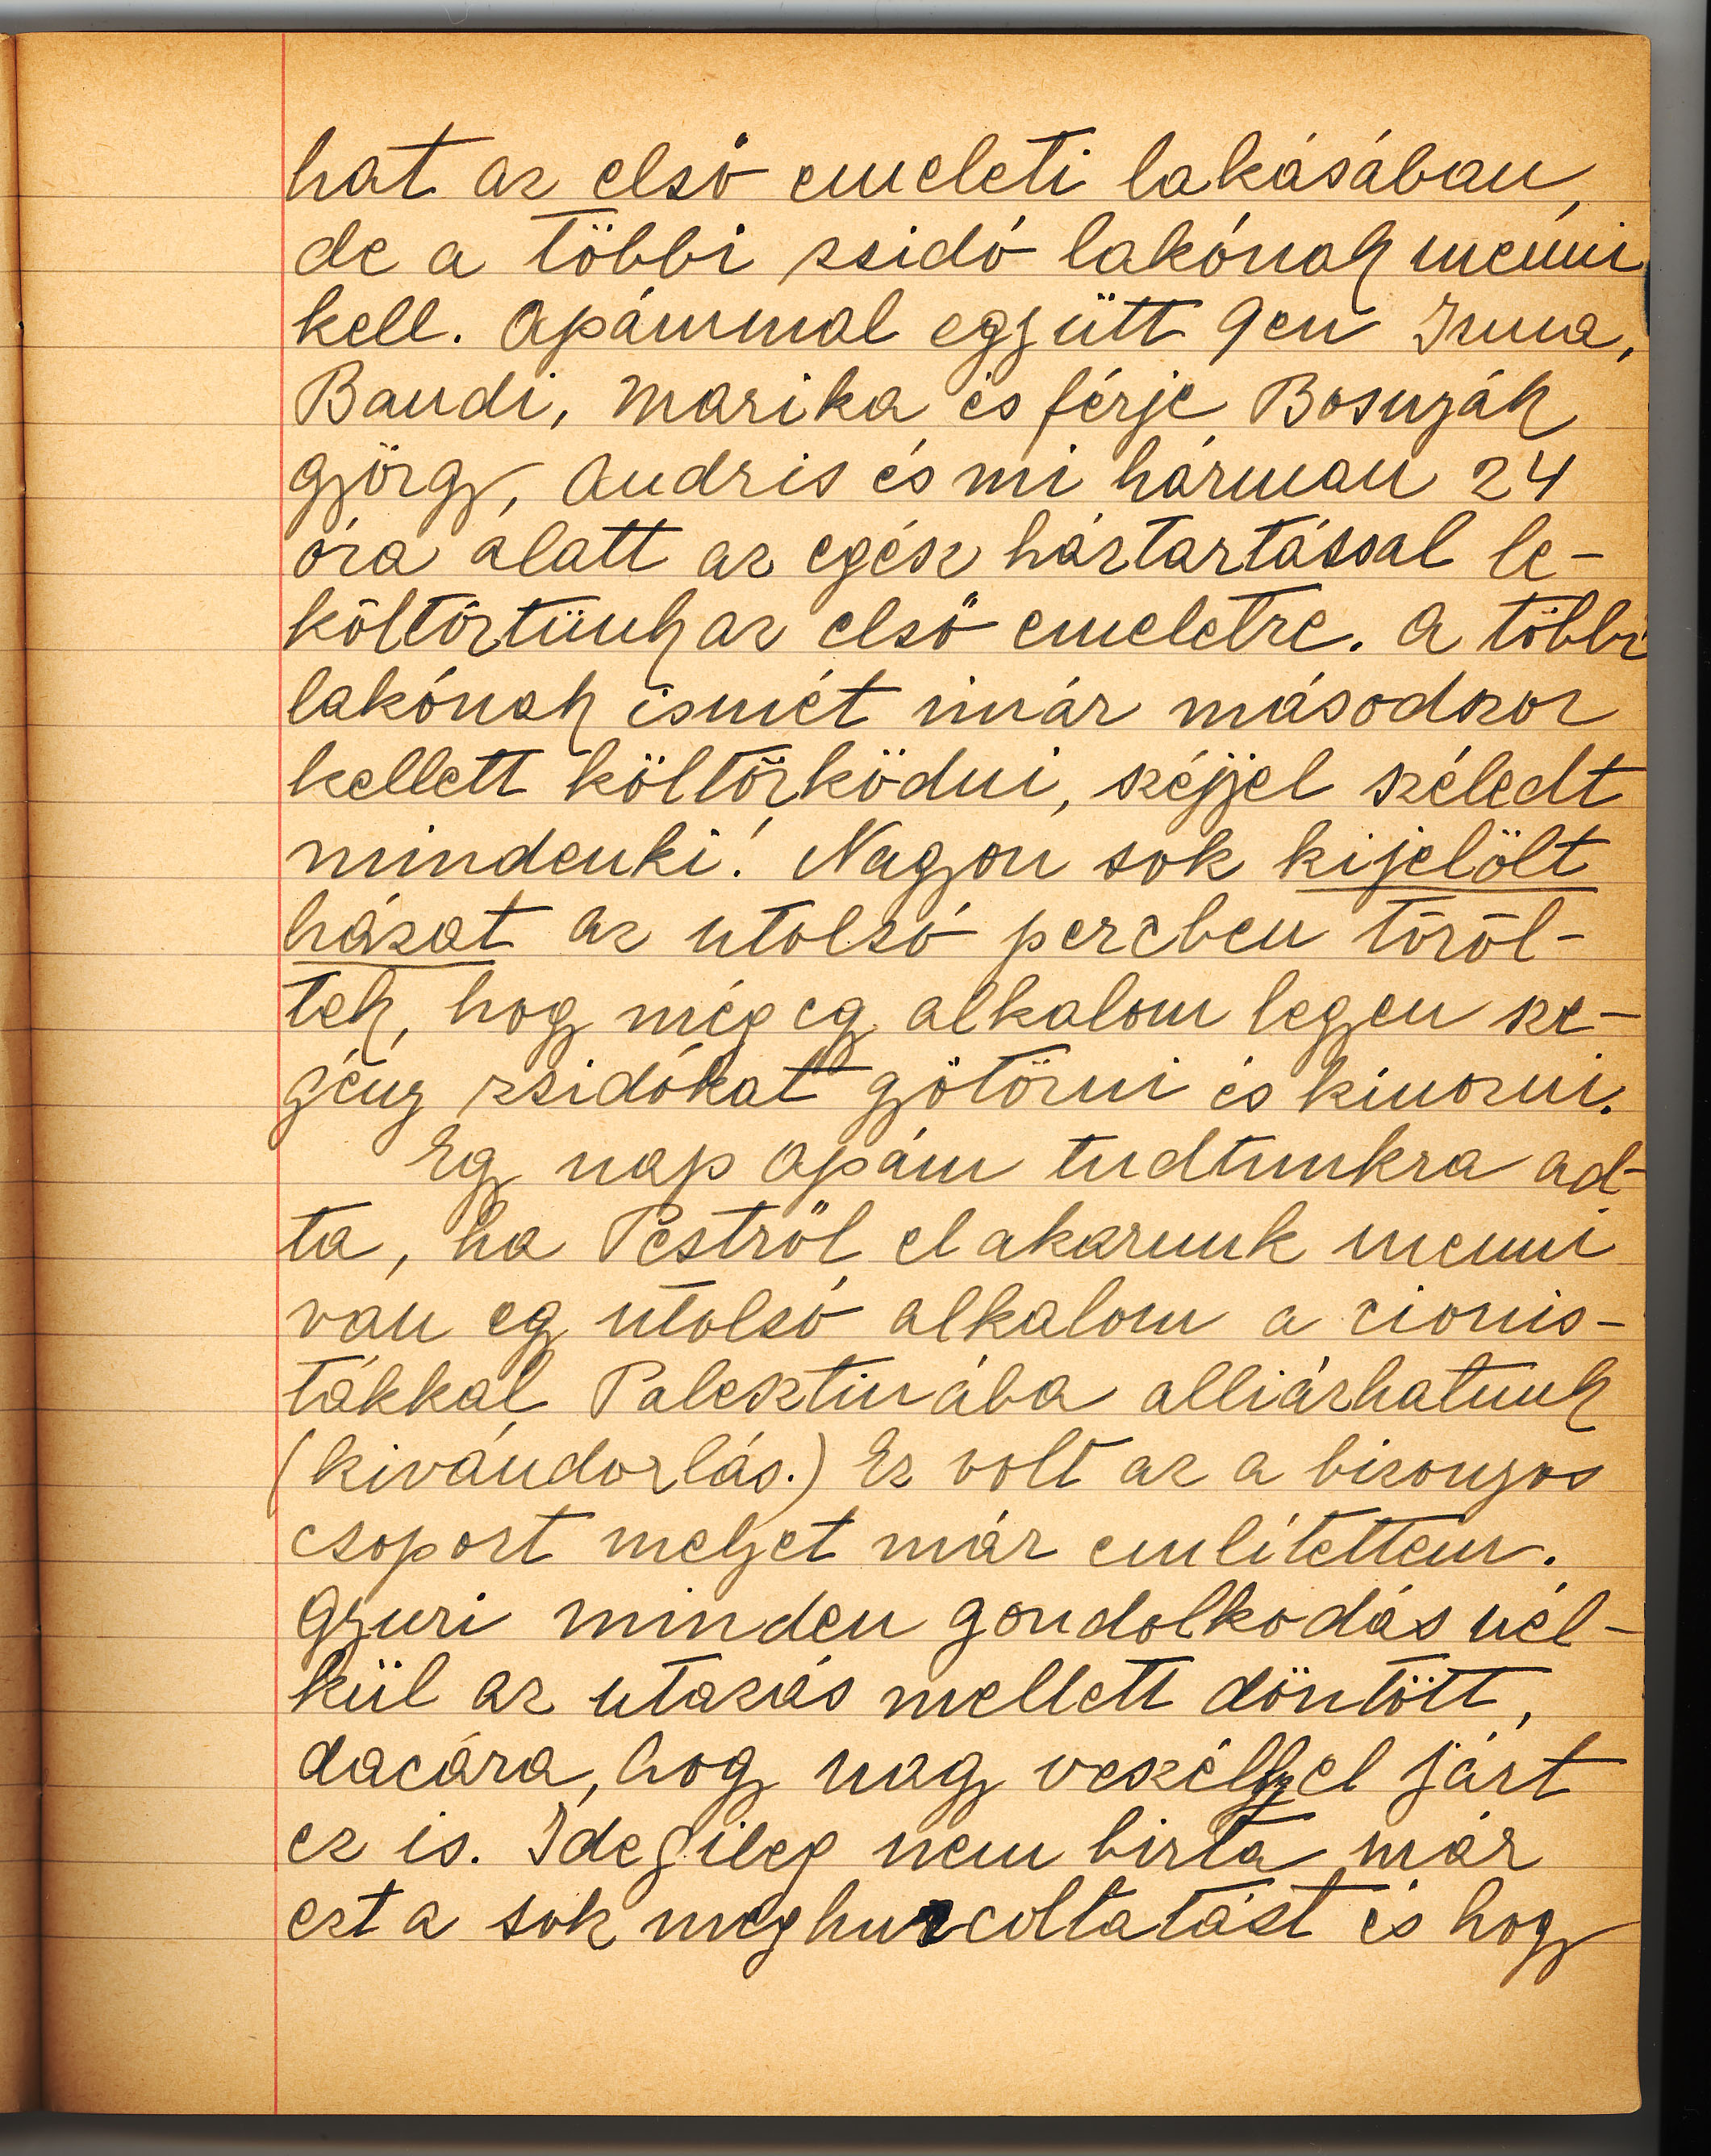 hat az első emeleti lakásában,
de a többi zsidó lakónak menni
kell. Apámmal együtt 9en Irma,
Bandi, Marika és férje Bosnyák
György, Andris és mi hárman 24
óra alatt az egész háztartással le-
költöztünk az első emeletre. A többi
lakónak ismét imár másodszor
kellett költözködni, széjjel széledt
mindenki! Nagyon sok kijelölt
házat az utolsó percben töröl-
tek, hogy még egy alkalom legyen sze-
gény zsidókat gyötörni és kinozni.
Egy nap Apám tudtunkra ad-
ta, ha Pestről el akarunk menni
van egy utolsó alkalom a cionis-
tákkal Palesztinába alliázhatunk
(kivándorlás.) Ez volt az a bizonyos
csoport melyet már emlitettem.
Gyuri minden gondolkodás nél-
kül az utazás mellett döntött,
dacára, hogy nagy veszéllyel járt
ez is. Idegileg nem birta már
ezt a sok meghurcoltatást és hogy